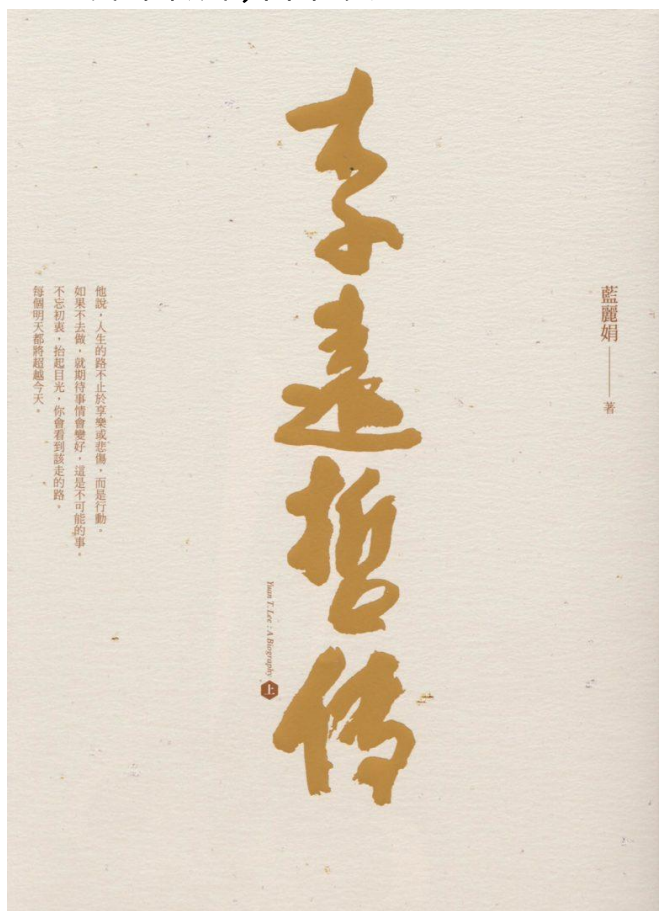 藍麗娟 著
李遠哲傳
Yuan T. Lee : A Biography 上
他說，人生的路不止於享樂或悲傷，而是行動。
如果不去做，就期待事情會變好，這是不可能的事。
不忘初衷，抬起目光，你會看到該走的路、
每個明天都將超越今天。